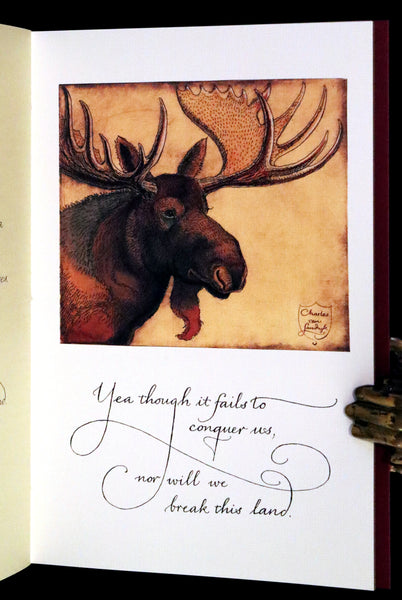 Charles
van
Sandwyk
Yea though it fails to
conquer us,
nor will we
break this land.